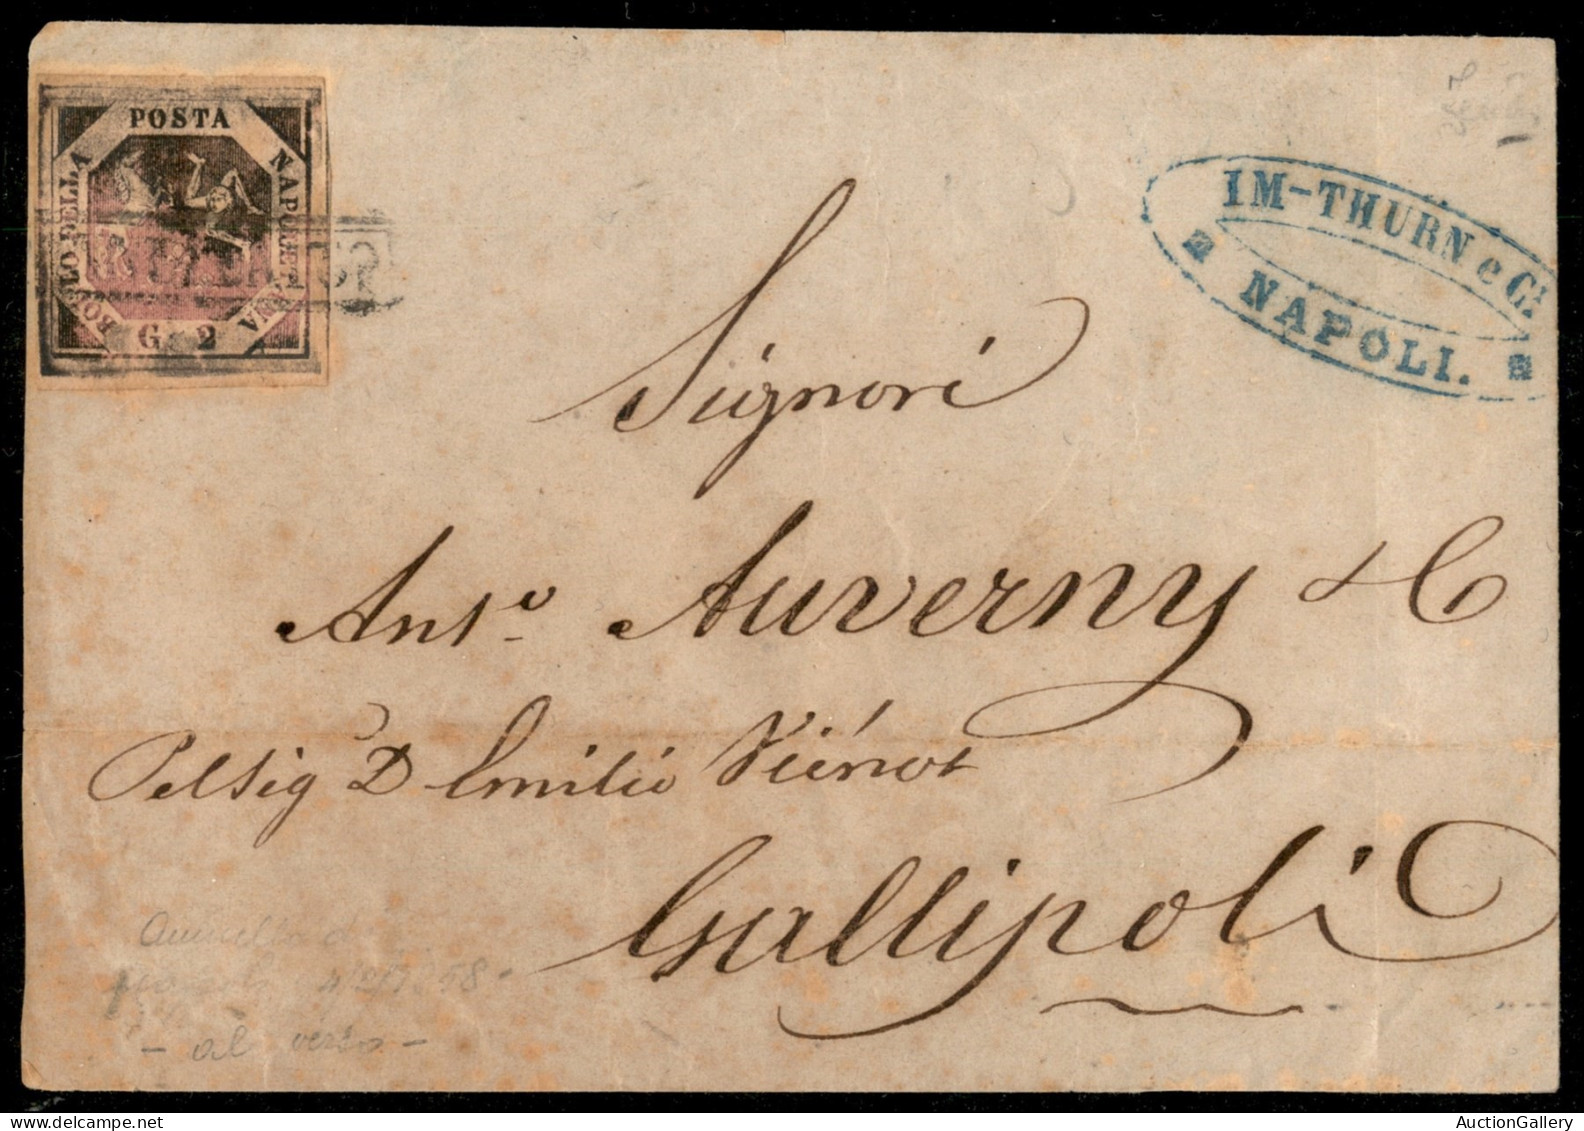 POSTA
NAPOLETANA
BOLLO DELLA
G. 2
IM-THURN e C.
NAPOLI.
Signori
Ant.o Auverny & C
Pel Sig D Emilio Viénot
Gallipoli
- al verso -
AuctionGallery